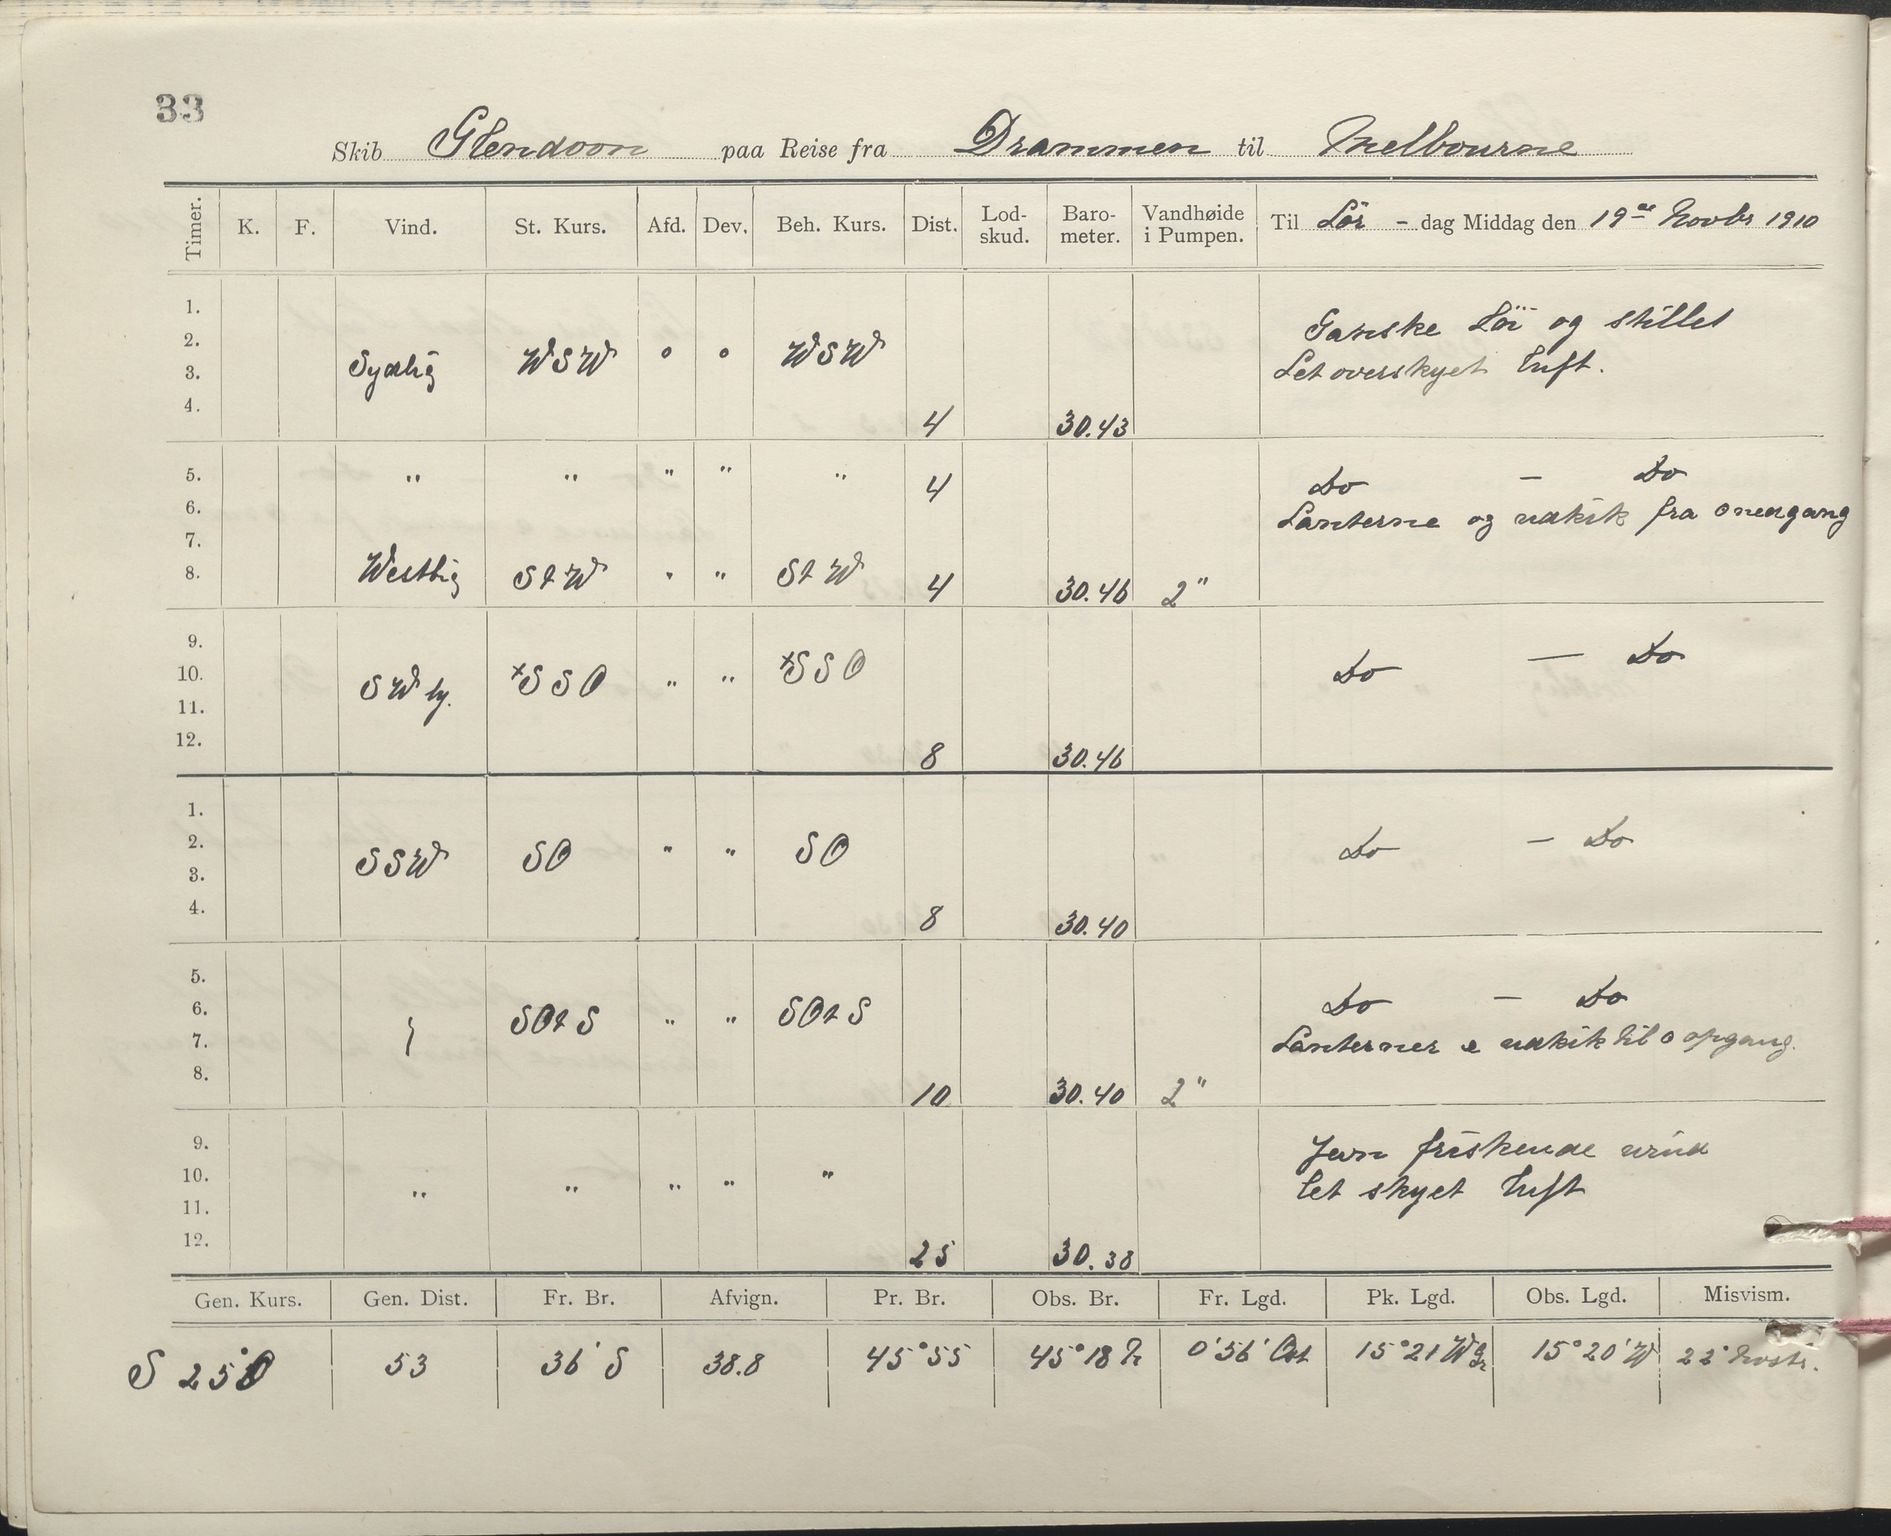 33
Skib Glendoon paa Reise fra Drammen til Melbourne
Timer. K. F. Vind. St. Kurs. Afd. Dev. Beh. Kurs. Dist. Lod-skud. Baro-meter. Vandhøide i Pumpen. Til Lör - dag Middag den 19de Novbr 1910
1.
2. Ganske Löi og stillet
3. Sydlig WSW o o WSW Let overskyet luft.
4. 4 30.43
5. " " " " " 4 Do — Do
6. Lanterne og udkik fra o nedgang
7.
8. Westlig St W " " St W 4 30.46 2"
9.
10. SW ly. xSSO " " xSSO Do — Do
11.
12. 8 30.46
1.
2. SSW SO " " SO Do — Do
3.
4. 8 30.40
5.
6. SOt S " " SOt S Do — Do
7. Lanterner & udkik til o opgang.
8. 10 30.40 2"
9. Jevn friskende vind
10. " " " " " let skyet luft
11.
12. 25 30.38
Gen. Kurs. Gen. Dist. Fr. Br. Afvign. Pr. Br. Obs. Br. Fr. Lgd. Pk. Lgd. Obs. Lgd. Misvism.
S 25°O 53 36' S 38.8 45°55 45°18 N 0°56' Ost 15°21 W Gr 15°20' W 22°